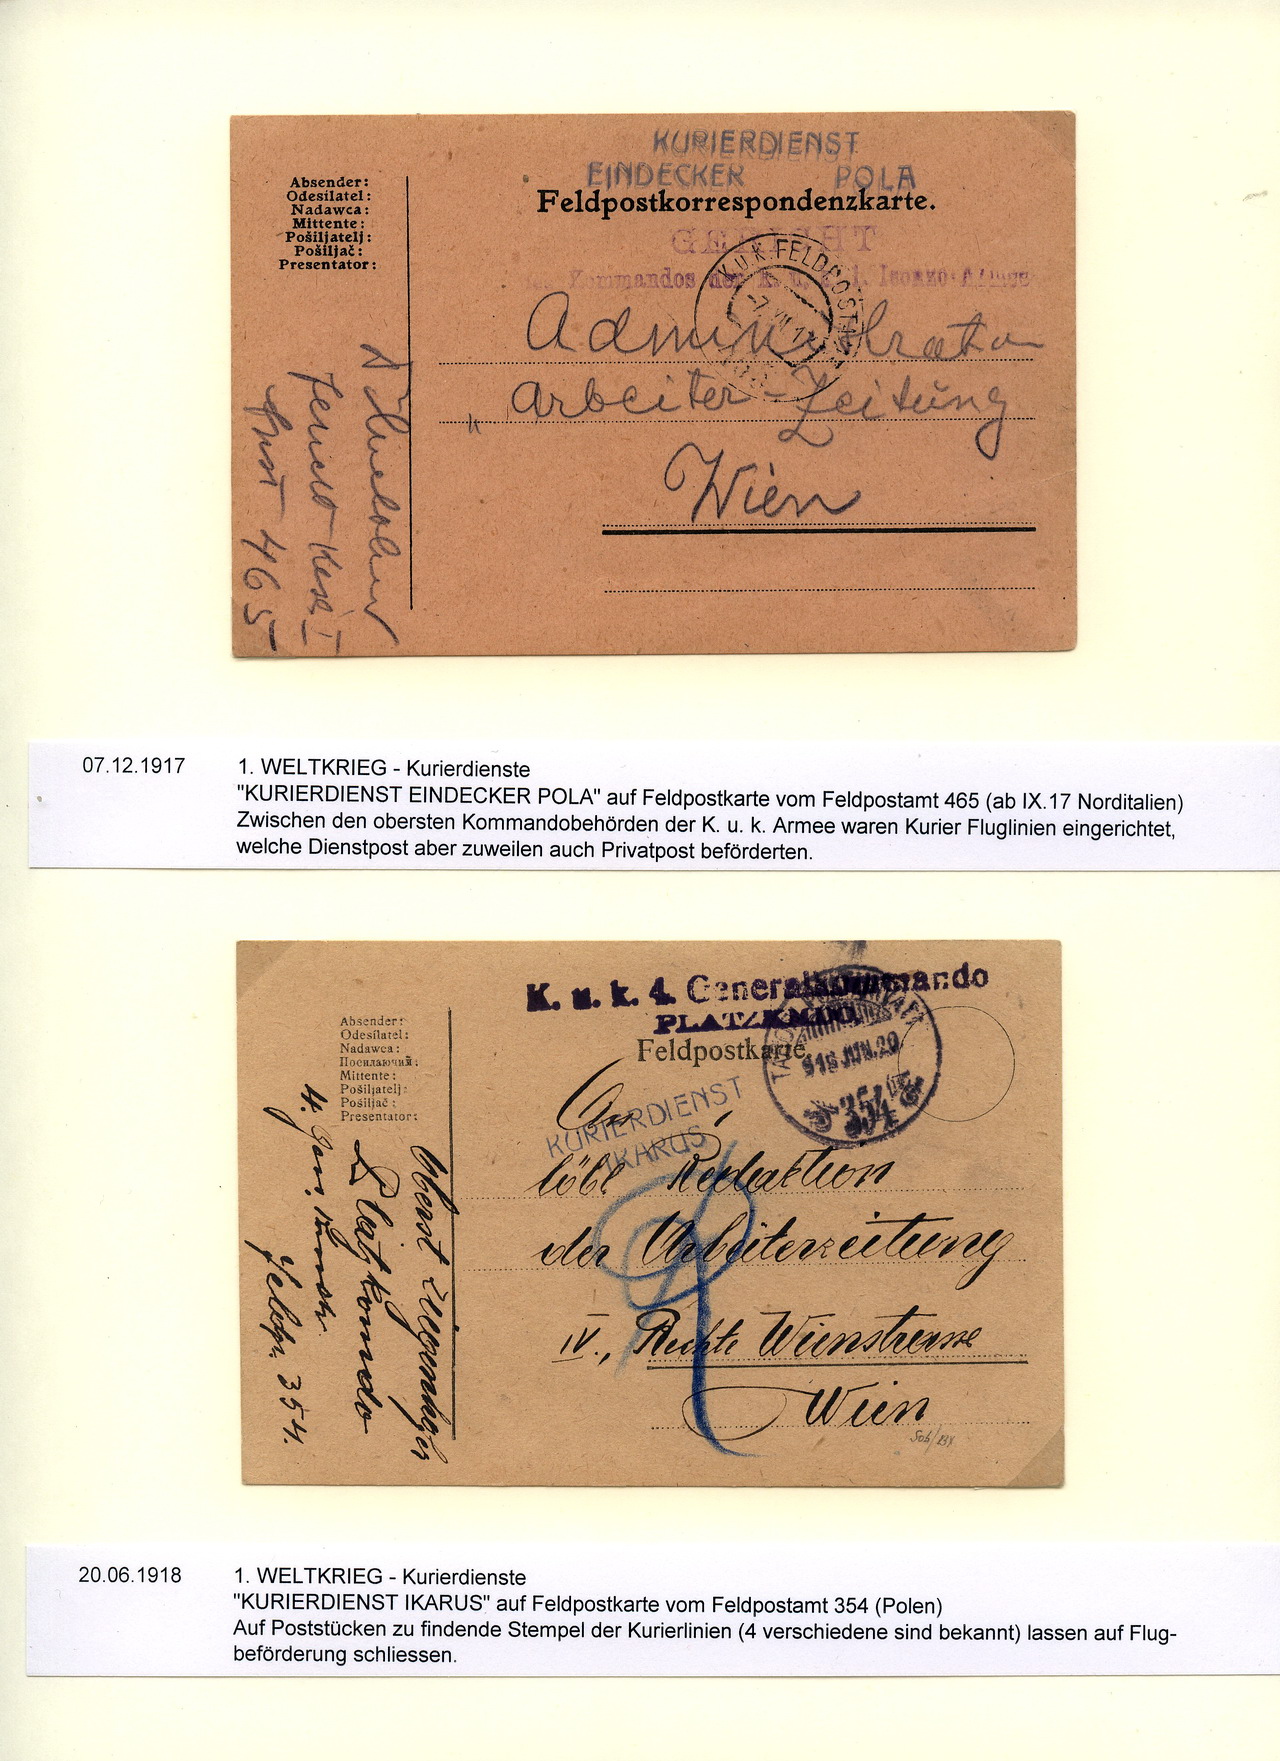 KURIERDIENST
EINDECKER POLA
Feldpostkorrespondenzkarte.
Absender:
Odesílatel:
Nadawca:
Mittente:
Pošiljatelj:
Pošiljač:
Presentator:
GERICHT
Kommandos der k. u. k. Isonzo-Armee
K.u.K. FELDPOSTAMT
Administration
Arbeiter-Zeitung
Wien
465
07.12.1917
1. WELTKRIEG - Kurierdienste
"KURIERDIENST EINDECKER POLA" auf Feldpostkarte vom Feldpostamt 465 (ab IX.17 Norditalien)
Zwischen den obersten Kommandobehörden der K. u. k. Armee waren Kurier Fluglinien eingerichtet,
welche Dienstpost aber zuweilen auch Privatpost beförderten.
K. u. k. 4. Generalkommando
PLATZKMDO.
Feldpostkarte.
Absender:
Odesílatel:
Nadawca:
Посилаючий:
Mittente:
Pošiljatelj:
Pošiljač:
Presentator:
918 JUN. 20
354
KURIERDIENST
IKARUS
An
löbl Redaktion
der Arbeiterzeitung
IV., Rechte Wienstrasse
Wien
Oberst
Platzkomdo
4.
Feldp. 354.
20.06.1918
1. WELTKRIEG - Kurierdienste
"KURIERDIENST IKARUS" auf Feldpostkarte vom Feldpostamt 354 (Polen)
Auf Poststücken zu findende Stempel der Kurierlinien (4 verschiedene sind bekannt) lassen auf Flug-
beförderung schliessen.